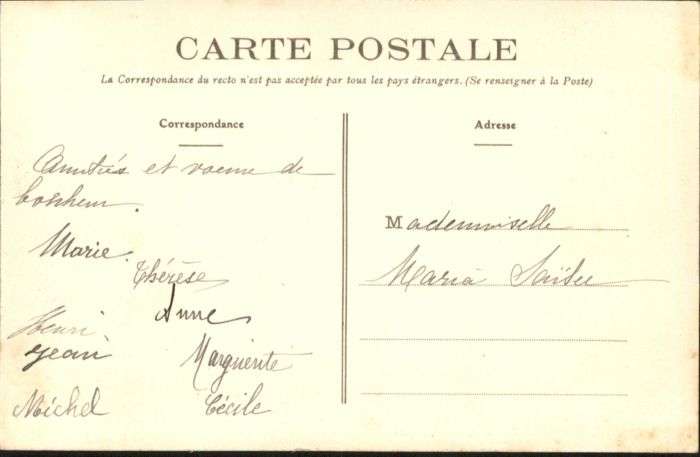 CARTE POSTALE
La Correspondance du recto n'est pas acceptée par tous les pays étrangers. (Se renseigner à la Poste)
Correspondance
Amitiés et voeux de
bonheur.
Marie
Thérèse
Anne
Henri
Jean
Marguerite
Michel
Cécile
Adresse
Mademoiselle
Maria